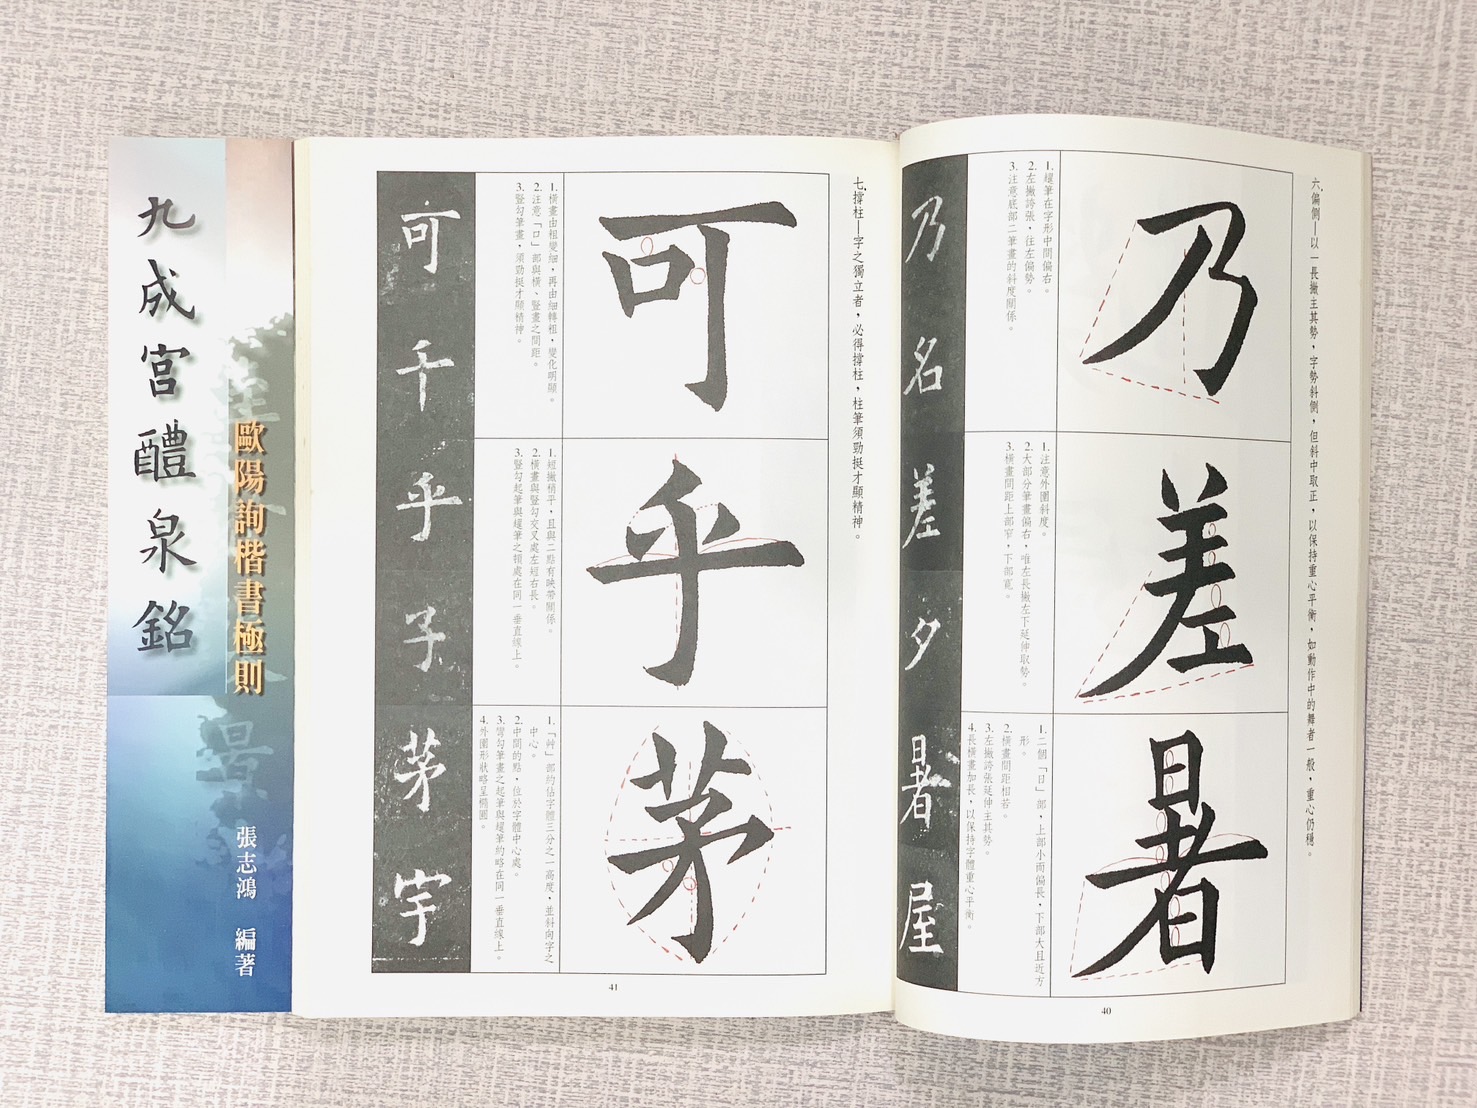 六、偏側—以一長撇主其勢，字勢斜側，但斜中取正，以保持重心平衡，如動作中的舞者一般，重心仍穩。
乃
差
暑
1. 趯筆在字形中間偏右。
2. 左撇誇張，往左偏勢。
3. 注意底部二筆畫的斜度關係。
1. 注意外圍斜度。
2. 大部分筆畫偏右，唯左長撇左下延伸取勢。
3. 橫畫間距上部窄，下部寬。
1. 二個「日」部，上部小而偏長，下部大且近方
形。
2. 橫畫間距相若。
3. 左撇誇張延伸主其勢。
4. 長橫畫加長，以保持字體重心平衡。
乃名差夕暑屋
40
七、撐柱—字之獨立者，必得撐柱，柱筆須勁挺才顯精神。
可
乎
茅
1. 橫畫由粗變細，再由細轉粗，變化明顯。
2. 注意「口」部與橫、豎畫之間距。
3. 豎勾筆畫，須勁挺才顯精神。
1. 短撇稍平，且與二點有映帶關係。
2. 橫畫與豎勾交叉處左短右長。
3. 豎勾起筆與趯筆之領處在同一垂直線上。
1. 「艸」部約佔字體三分之一高度，並斜向字之
中心。
2. 中間的點，位於字體中心處。
3. 彎勾筆畫之起筆與趯筆約略在同一垂直線上。
4. 外圍形狀略呈橢圓。
可千乎子茅宇
41
歐陽詢楷書極則
張志鴻 編著
九成宮醴泉銘